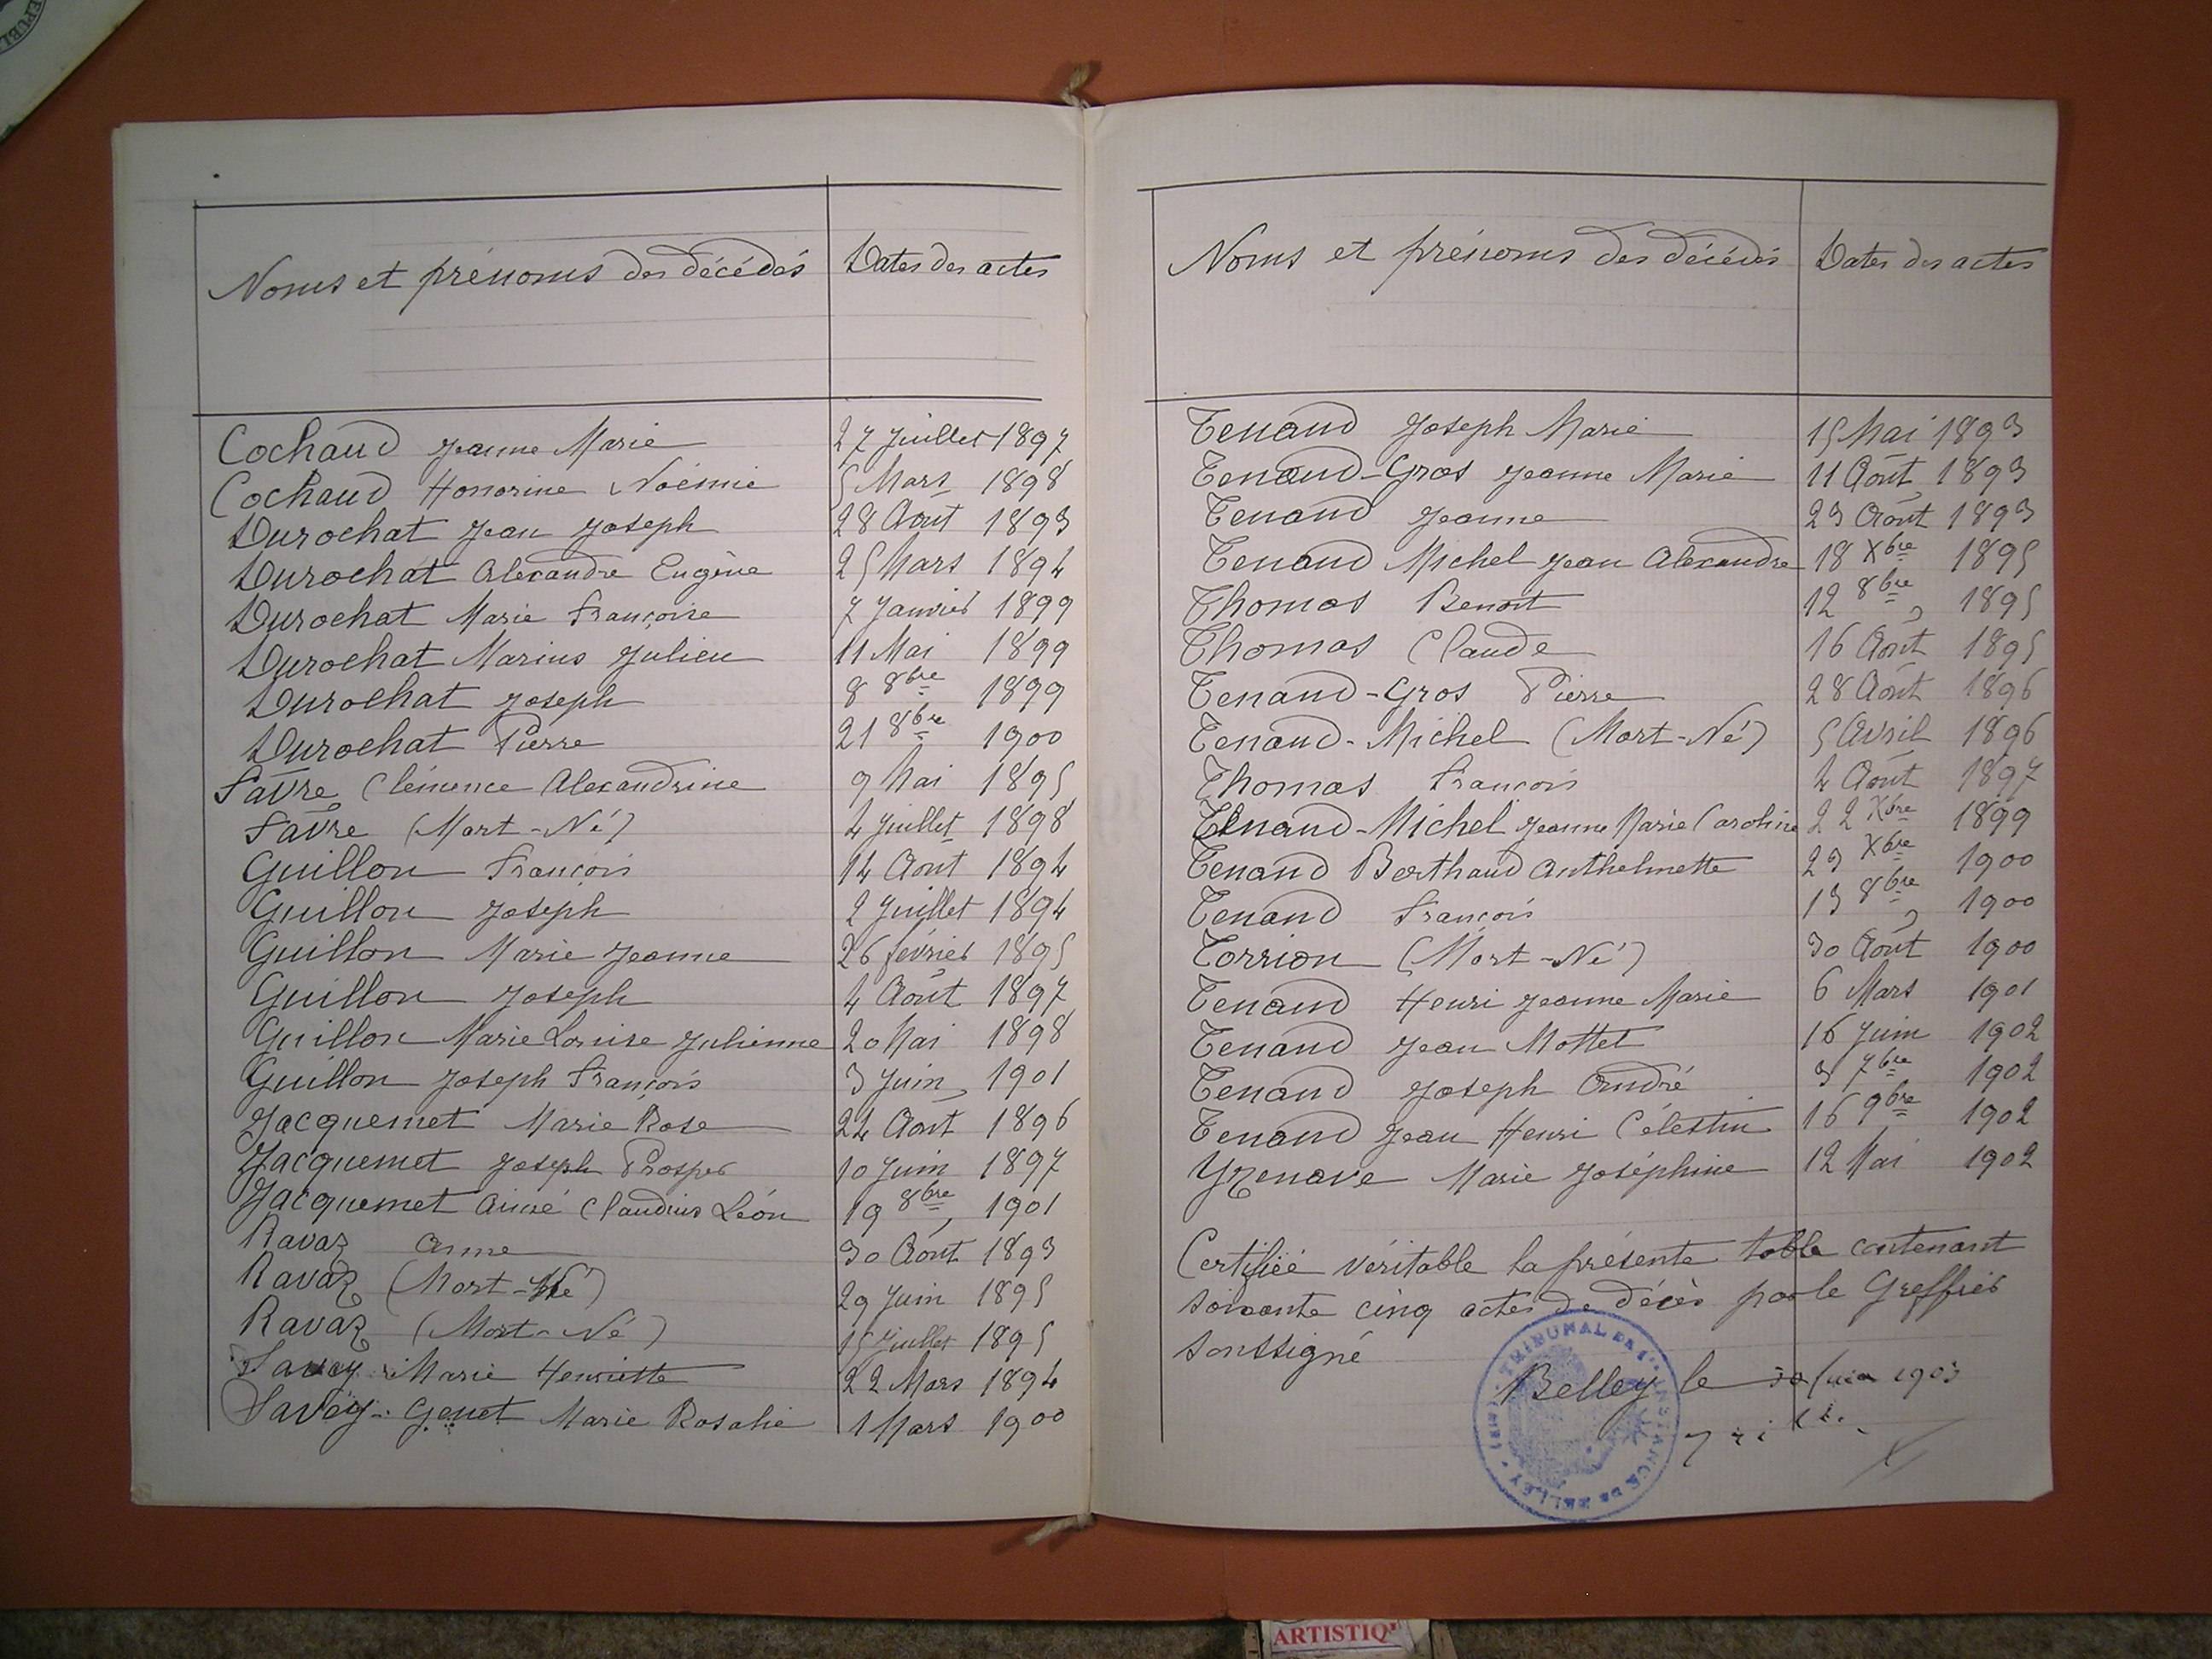 Noms et prénoms des décédés Dates des actes
Cochaud Jeanne Marie 27 Juillet 1897
Cochaud Honorine Noémie 5 Mars 1898
Durochat Jean Joseph 28 Aout 1893
Durochat Alexandre Eugène 25 Mars 1894
Durochat Marie Françoise 7 Janvier 1899
Durochat Marius Julien 11 Mai 1899
Durochat Joseph 8 8bre 1899
Durochat Pierre 21 8bre 1900
Favre Clémence Alexandrine 9 Mai 1895
Favre (Mort-Né) 4 Juillet 1898
Guillon François 14 Aout 1894
Guillon Joseph 2 Juillet 1894
Guillon Marie Jeanne 26 février 1895
Guillon Joseph 4 Août 1897
Guillon Marie Louise Julienne 20 Mai 1898
Guillon Joseph François 3 Juin 1901
Jacquemet Marie Rose 24 Aout 1896
Jacquemet Joseph Prosper 10 Juin 1897
Jacquemet Aimé Claudius Léon 19 8bre 1901
Ravaz Anne 30 Août 1893
Ravaz (Mort-Né) 29 Juin 1895
Ravaz (Mort-Né) 15 Juillet 1895
Savey Marie Henriette 22 Mars 1894
Savey-Genet Marie Rosalie 1 Mars 1900
Noms et prénoms des décédés Dates des actes
Tenand Joseph Marie 15 Mai 1893
Tenand-Gros Jeanne Marie 11 Août 1893
Tenand Jeanne 23 Août 1893
Tenand Michel Jean Alexandre 18 Xbre 1895
Thomas Benoit 12 8bre 1895
Thomas Claude 16 Août 1895
Tenand-Gros Pierre 28 Août 1896
Tenand-Michel (Mort-Né) 5 Avril 1896
Thomas François 4 Août 1897
Tenand-Michel Jeanne Marie Caroline 22 Xbre 1899
Tenand Berthaud Anthelmette 23 Xbre 1900
Tenand François 13 8bre 1900
Torrion (Mort-Né) 30 Août 1900
Tenand Henri Jeanne Marie 6 Mars 1901
Tenand Jean Mottet 16 Juin 1902
Tenand Joseph André 3 7bre 1902
Tenand Jean Henri Célestin 16 9bre 1902
Yzenave Marie Joséphine 12 Mai 1902
Certifiée véritable la présente table contenant
soixante cinq actes de décès par le Greffier
soussigné
Belley le 30 Juin 1903
TRIBUNAL DE 1ère INSTANCE DE BELLEY (AIN)
ARTISTIQ